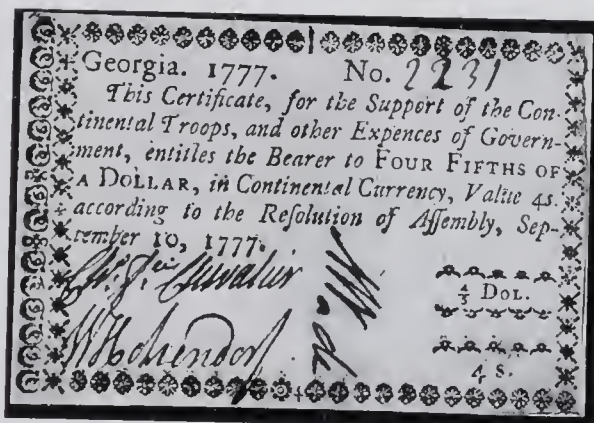 Georgia. 1777. No. 2231
This Certificate, for the Support of the Con-
tinental Troops, and other Expences of Govern-
ment, entitles the Bearer to FOUR FIFTHS OF
A DOLLAR, in Continental Currency, Value 4s.
according to the Reſolution of Aſſembly, Sep-
tember 10, 1777.
Chevalier
4/5 DOL.
4 S.